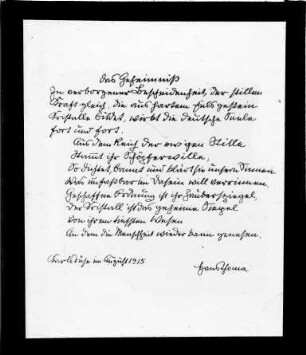 Das Geheimniß
In verborgener Bescheidenheit, der stillen
Kraft gleich, die aus hartem Felsgestein
Kristalle bildet, wirbt die deutsche Seele
fort und fort.
Aus dem Reich der ewigen Stille
Stamt ihr Schöpferwille,
So dichtet, bannt und klärt sie unsern Sinnen
Was unfaßbar im Dasein will verrinnen.
Geschaffne Ordnung ist ihr Zauberspiegel.
Der Kristall ist das geheime Siegel
Von ihrem tiefsten Wesen
An dem die Menschheit wieder kann genesen.
Karlsruhe im August 1915
Hans Thoma